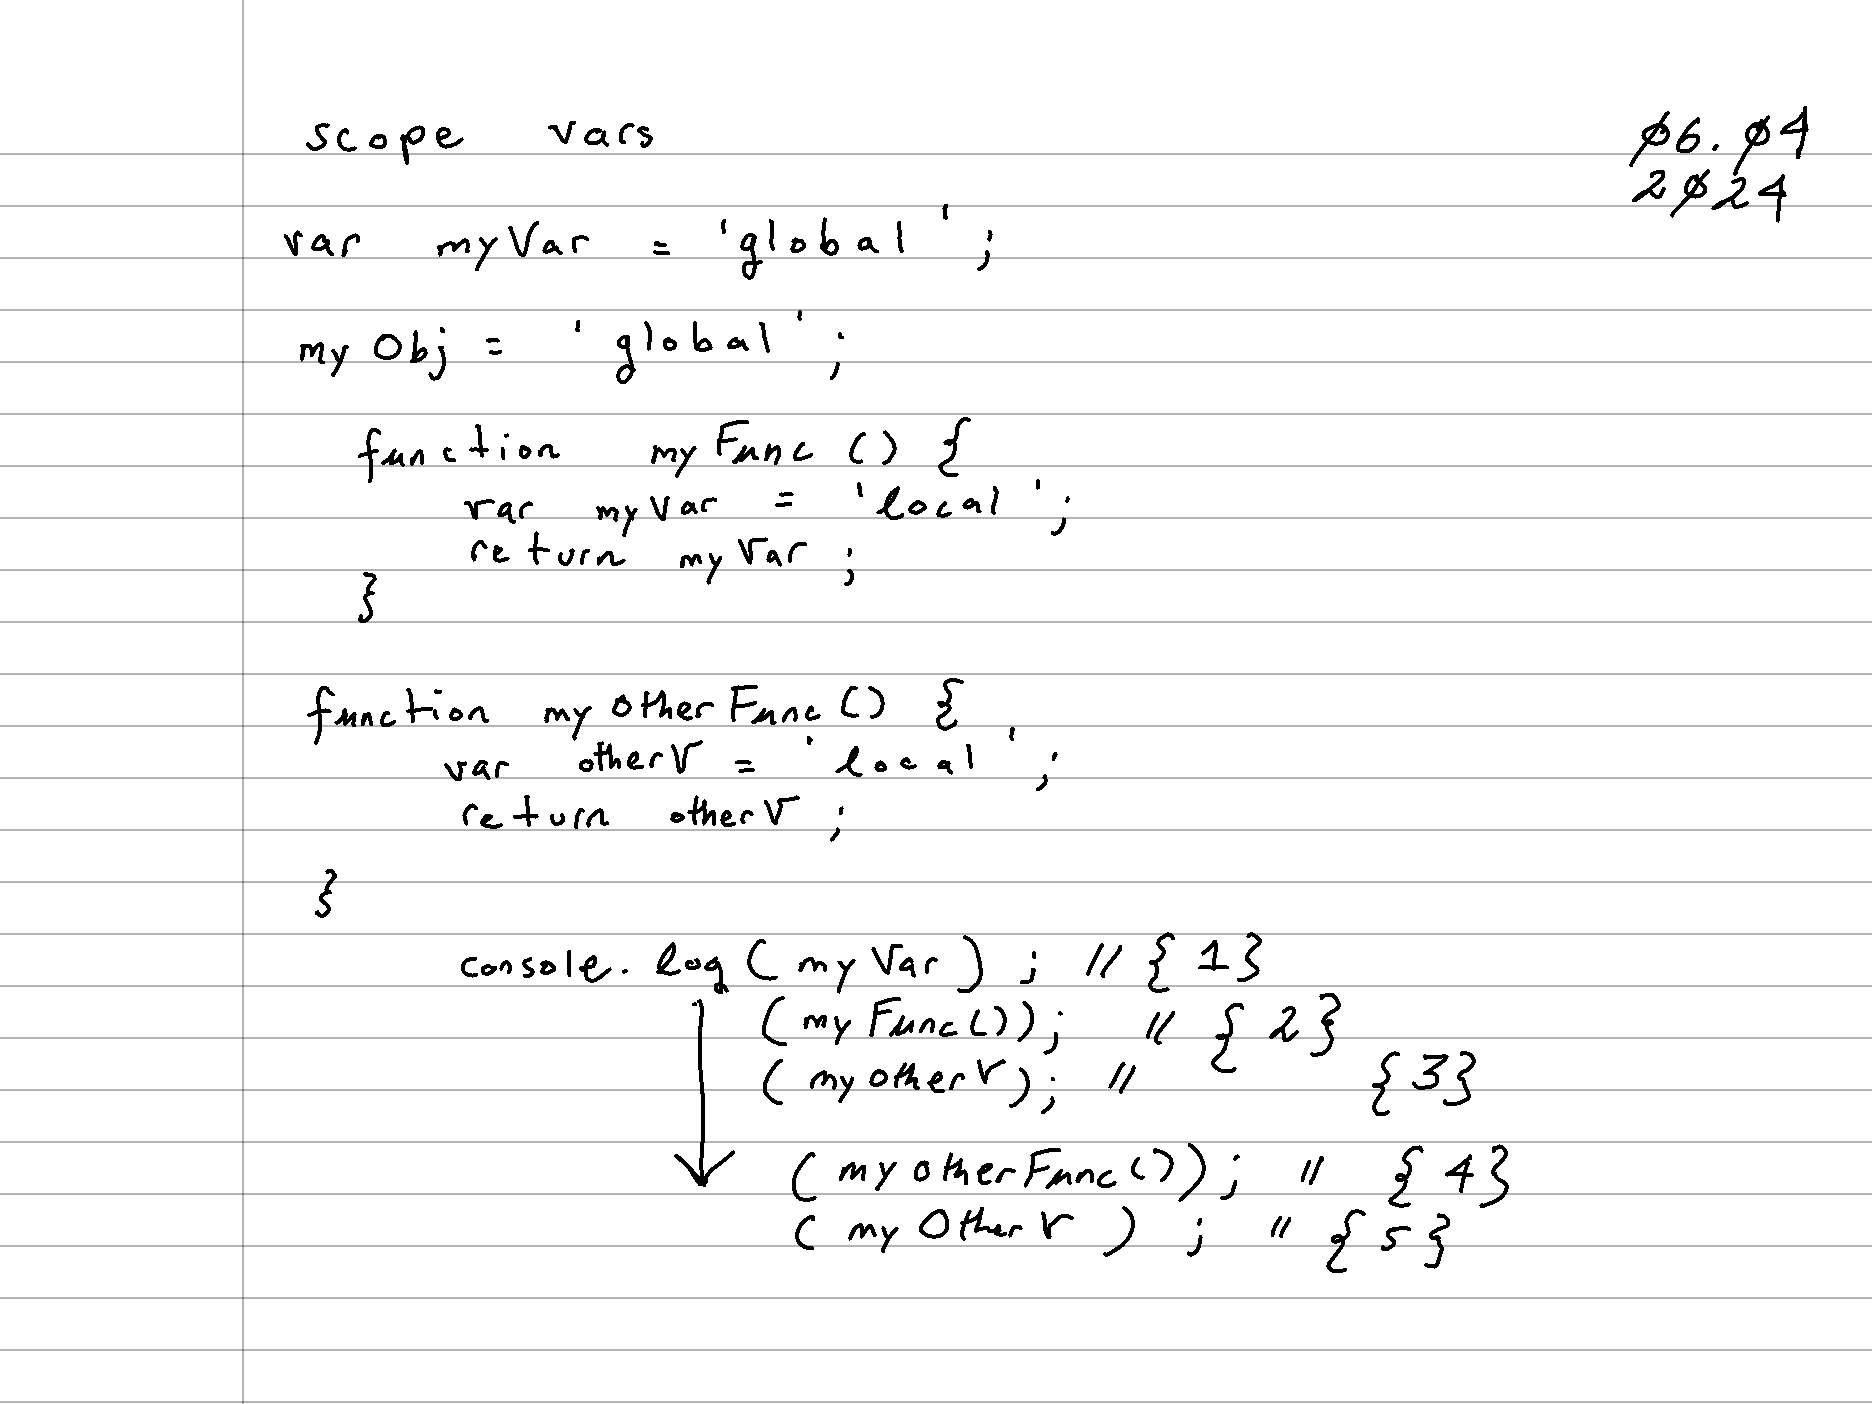 scope vars
06.04
2024
var myVar = 'global';
myObj = 'global';
function myFunc () {
var myVar = 'local';
return myVar;
}
function myOtherFunc () {
var otherV = 'local';
return otherV;
}
console.log (myVar); // {1}
(myFunc()); // {2}
(myotherV); // {3}
(myotherFunc()); // {4}
(myOtherV); // {5}